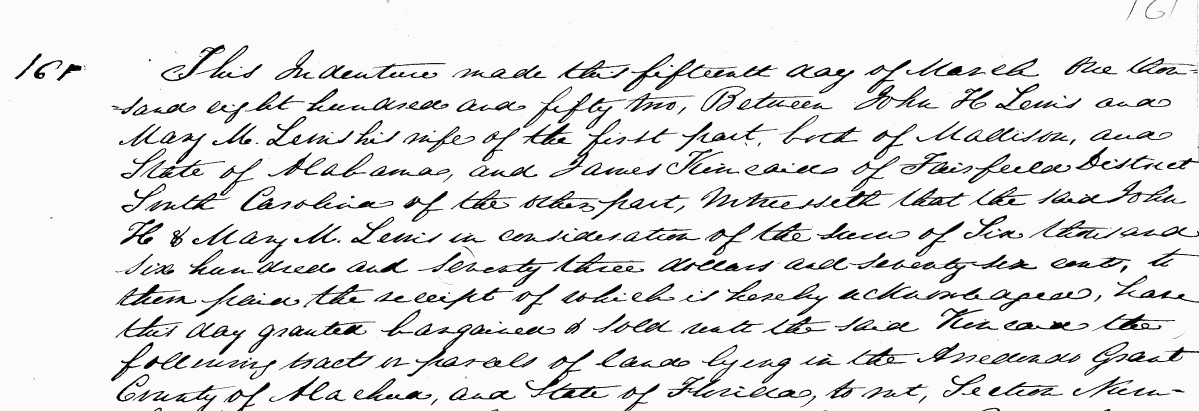 161
This Indenture made this fifteenth day of March One thou-
-sand eight hundred and fifty two, Between John H Lewis and
Mary M. Lewis his wife of the first part, both of Madison, and
State of Alabama, and James Kincaid of Fairfield District
South Carolina of the other part, Witnesseth that the said John
H & Mary M. Lewis in consideration of the sum of Six thousand
six hundred and seventy three dollars and seventy six cents, to
them paid, the receipt of which is hereby acknowledged, have
this day granted bargained & sold unto the said Kincaid the
following tracts or parcels of land lying in the Arredondo Grant
County of Alachua, and State of Florida, to wit, Section Num-